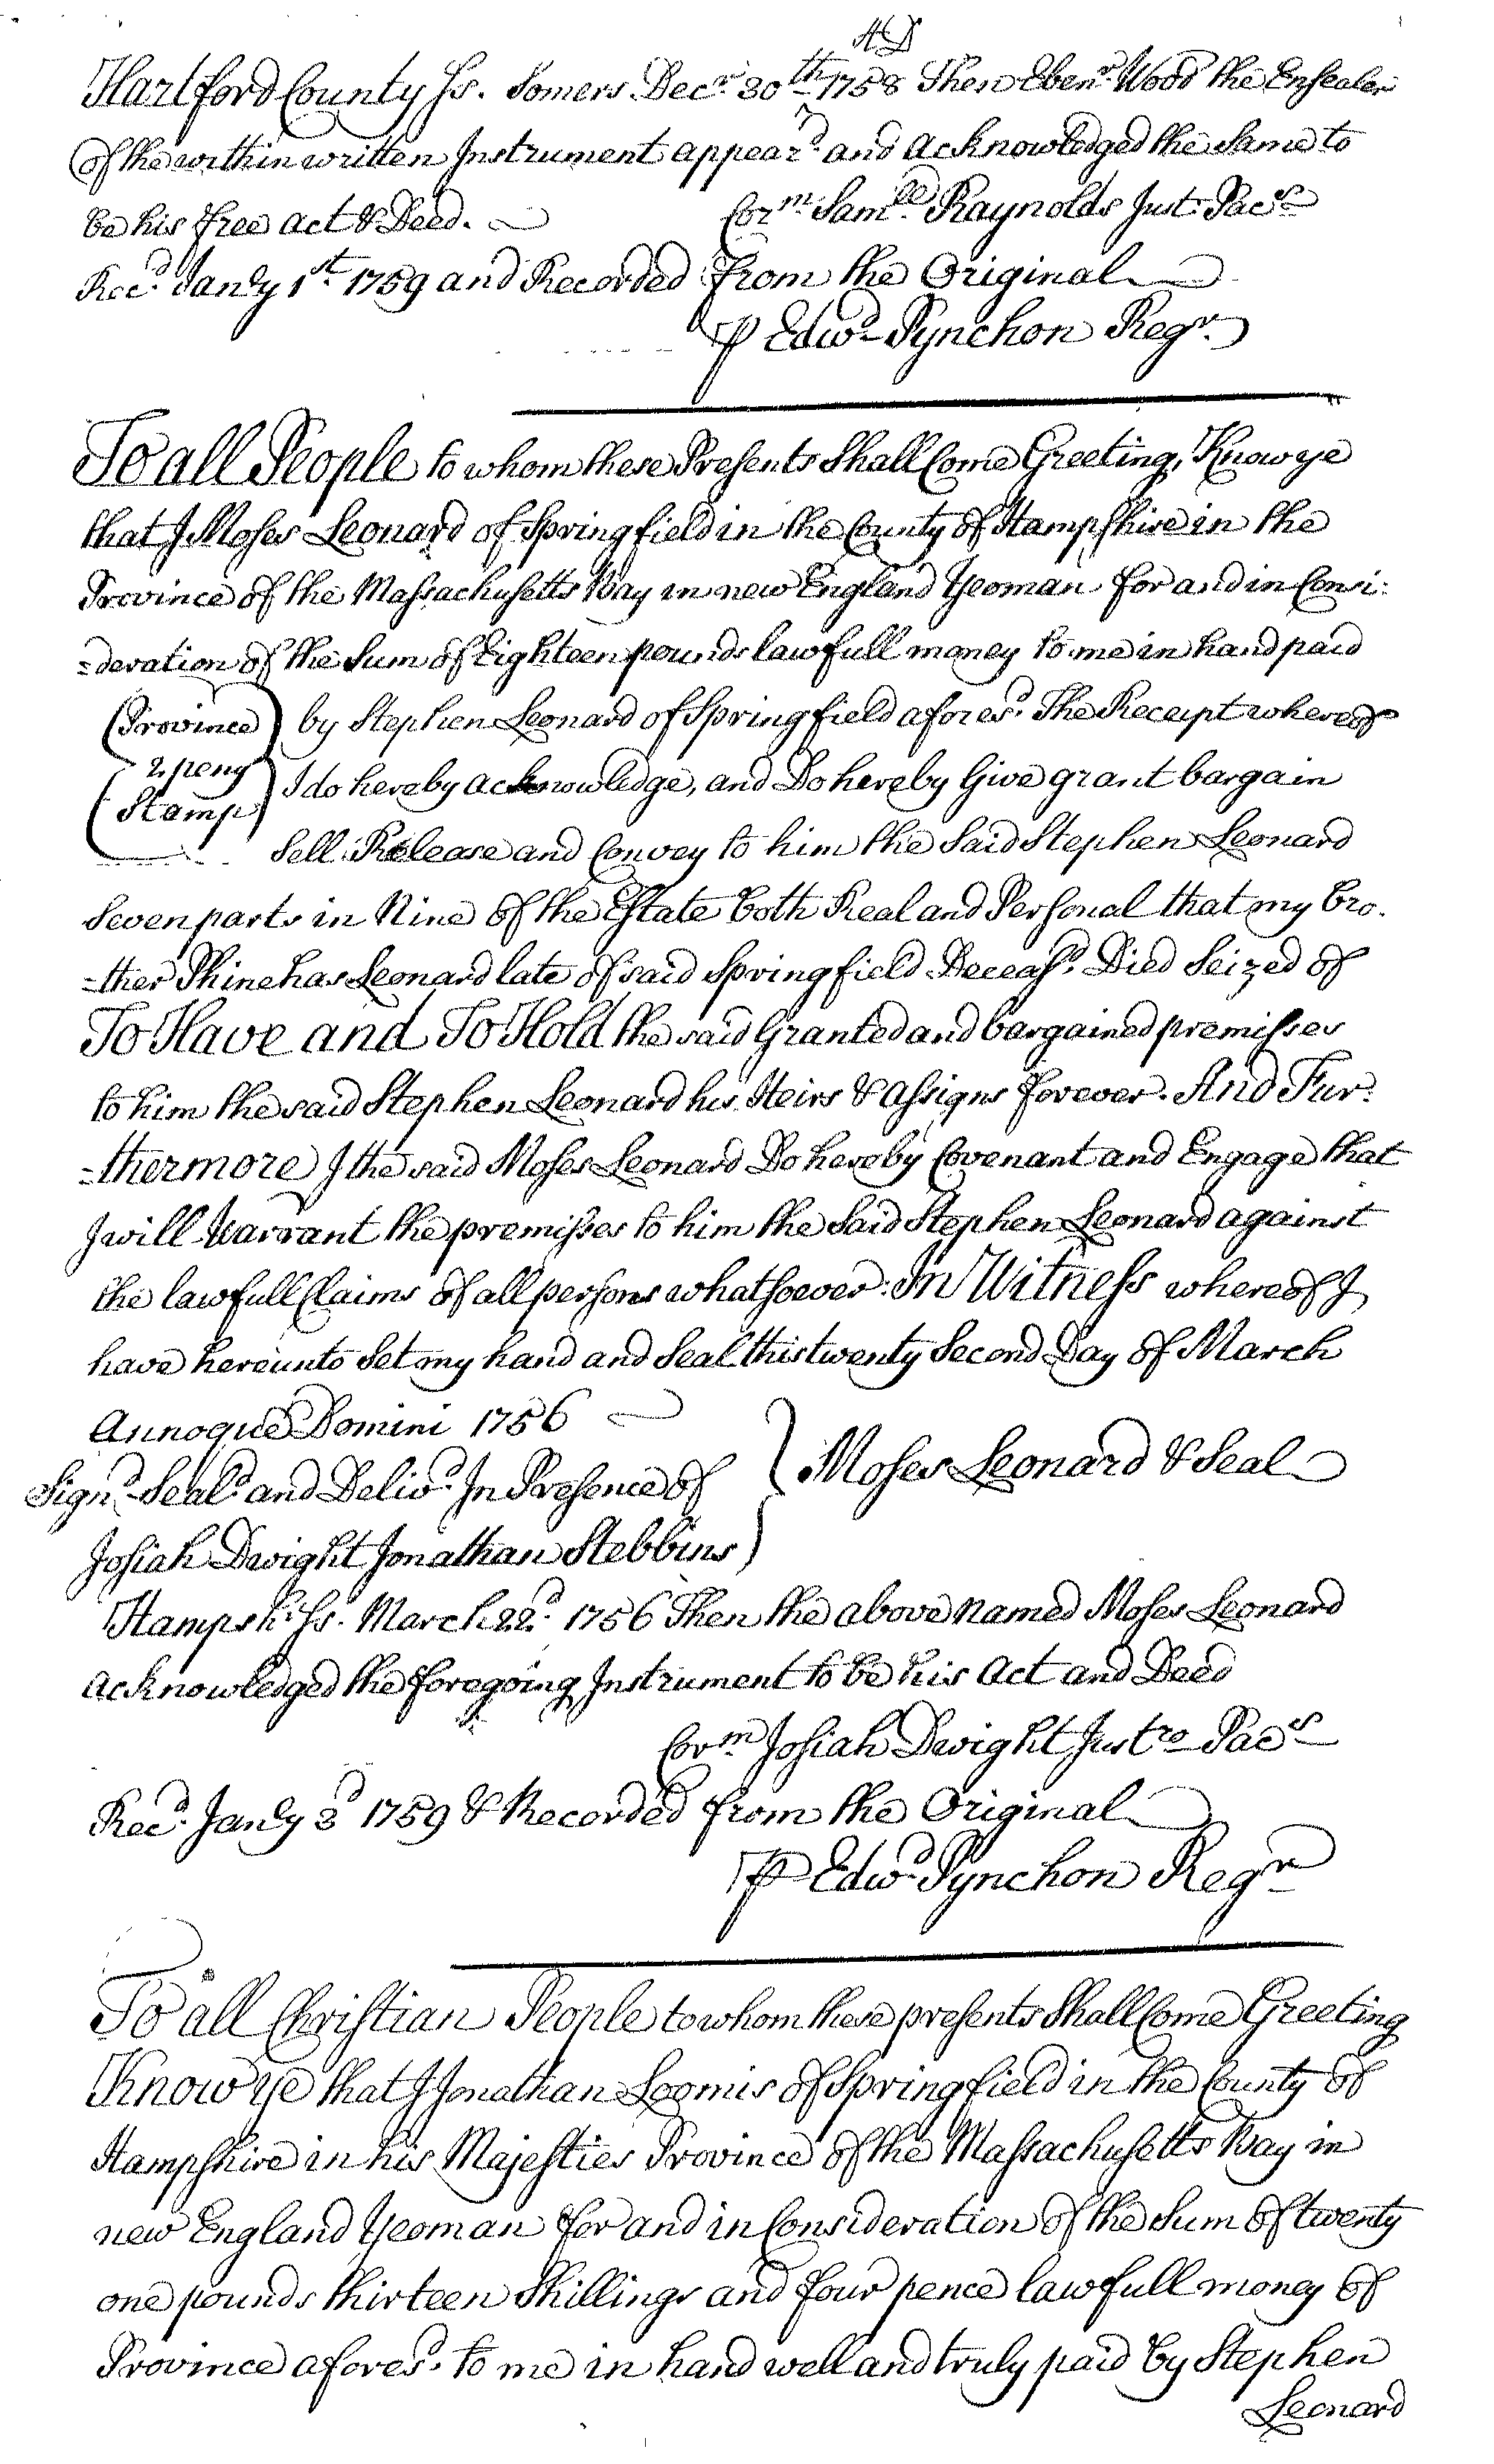 AD
Hartford County Ss. Somers Decr. 30th 1758 Then Ebenr. Wood the Ensealer
of the within written Instrument appeard. and acknowledged the same to
be his free act & Deed.
Corm. Samll Raynolds Just. Pacs
Recd. Janly 1st. 1759 and Recorded from the Original
P Edwd Pynchon Regr.
To all People to whom these Presents Shall Come Greeting, Know ye
that I Moses Leonard of Springfield in the County of Hampshire in the
Province of the Massachusetts Bay in new England Yeoman for and in Consi:
=deration of the Sum of Eighteen pounds lawfull money to me in hand paid
(Province) by Stephen Leonard of Springfield aforesd. The Receipt whereof
2 peny
I do hereby acknowledge, and Do hereby Give grant bargain
(Stamp)
Sell Release and Convey to him the Said Stephen Leonard
Seven parts in Nine of the Estate both Real and Personal that my bro.
=ther Phinehas Leonard late of said Springfield Deceasd. Died Seized of
To Have and To Hold the said Granted and bargained premisses
to him the said Stephen Leonard his Heirs & assigns forever. And Fur:
=thermore I the said Moses Leonard Do hereby Covenant and Engage that
I will Warrant the premisses to him the Said Stephen Leonard against
the lawfull Claims of all persons whatsoever. In Witness whereof I
have hereunto Set my hand and Seal this twenty Second Day of March
Annoque Domini 1756
Moses Leonard & Seal
Signd. Seald. and Delivd. In Presence of
Josiah Dwight Jonathan Stebbins
Hampshr. Ss. March 22d. 1756 Then the above named Moses Leonard
acknowledged the foregoing Instrument to be his Act and Deed
Corm. Josiah Dwight Justce Pacs
Recd. Janly 3d 1759 & Recorded from the Original
P Edwd Pynchon Regr
To all Christian People to whom these presents Shall Come Greeting
Know ye that I Jonathan Loomis of Springfield in the County of
Hampshire in his Majesties Province of the Massachusetts Bay in
new England Yeoman for and in Consideration of the Sum of twenty
one pounds thirteen Shillings and four pence lawfull money of
Province aforesd. to me in hand well and truly paid by Stephen
Leonard